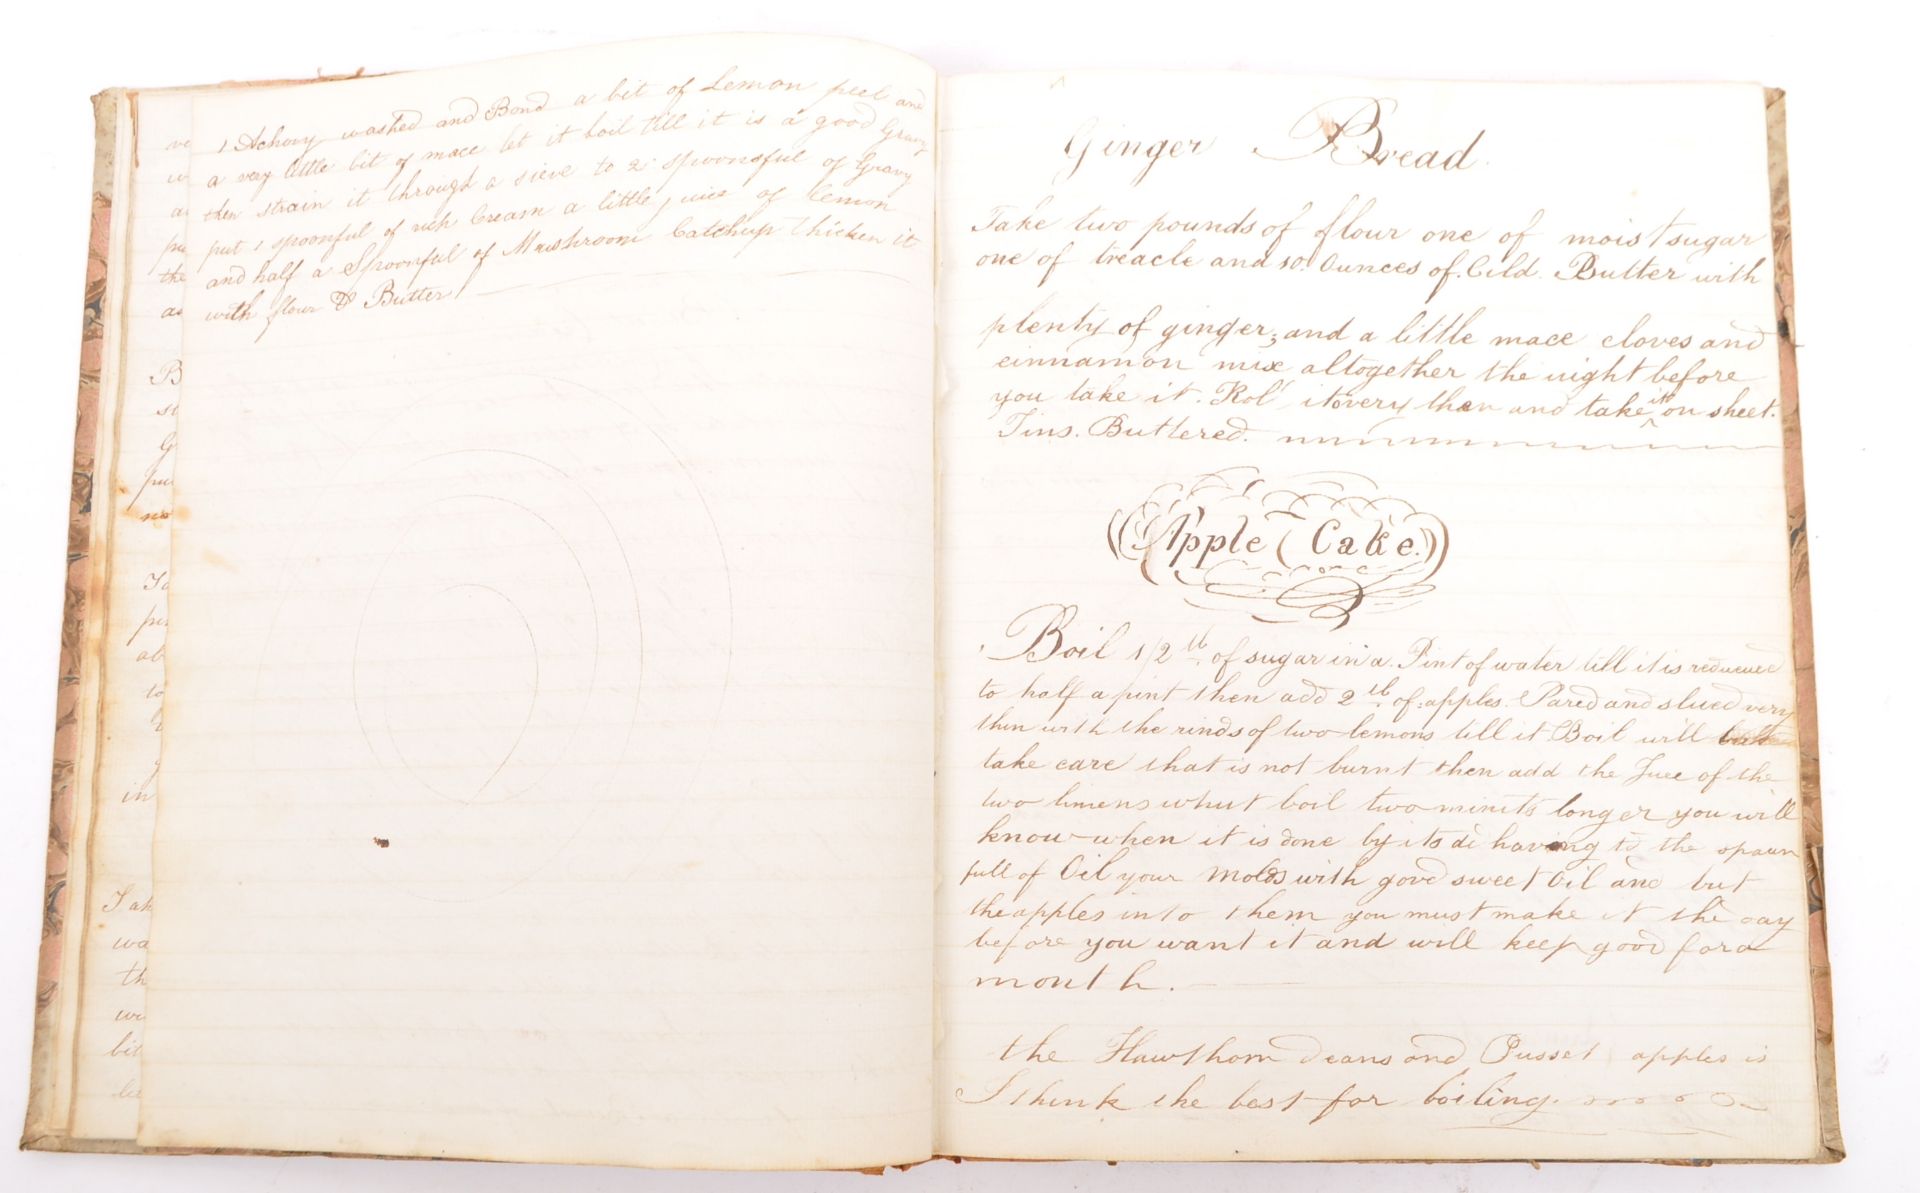 1 Achovy washed and Bond a bit of Lemon peel and
a very little bit of mace let it boil till it is a good Gravy
then strain it through a sieve to 2 spoonsful of Gravy
put 1 spoonful of rich Cream a little juice of Lemon
and half a Spoonful of Mushroom Catchup thicken it
with flour & Butter
Ginger Bread.
Take two pounds of flour one of moist sugar
one of treacle and 10. Ounces of. Cild. Butter with
plenty of ginger, and a little mace cloves and
cinnamon mix altogether the night before
you take it. Rol it very then and take it on sheet.
Tins. Buttered.
Apple Cake.
Boil 1/2 lb of sugar in a. Pint of water till it is reduced
to half a pint then add 2 lb of apples. Pared and slued very
thin with the rinds of two lemons till it Boil will
take care that is not burnt then add the Juce of the
two limens whut boil two minits longer you will
know when it is done by its d having to the spaun
full of Oil your molds with good sweet Oil and but
the apples into them you must make it the day
before you want it and will keep good for a
month.
the Hawthorn deans and Russet apples is
I think the best for boiling.